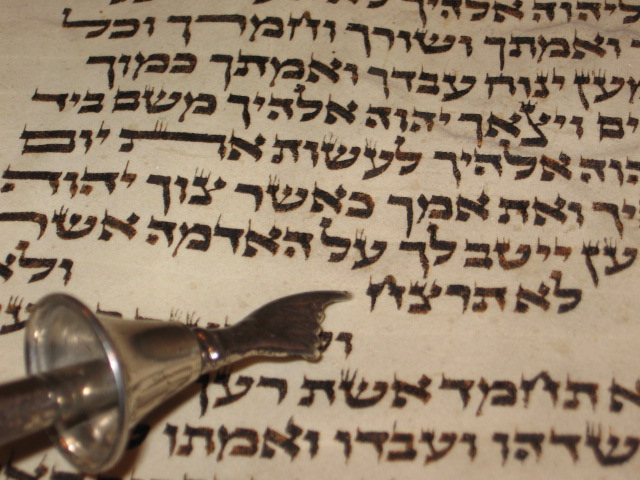 ליהוה אלהיך
ואמתך ושורך וחמרך וכל
למען ינוח עבדך ואמתך כמוך
ים ויצאך יהוה אלהיך משם ביד
הוה אלהיך לעשות את יום
יך ואת אמך כאשר צוך יהוה
ען ייטב לך על האדמה אשר
לא תרצח ולא
א תחמד אשת רעך
שדהו ועבדו ואמתו